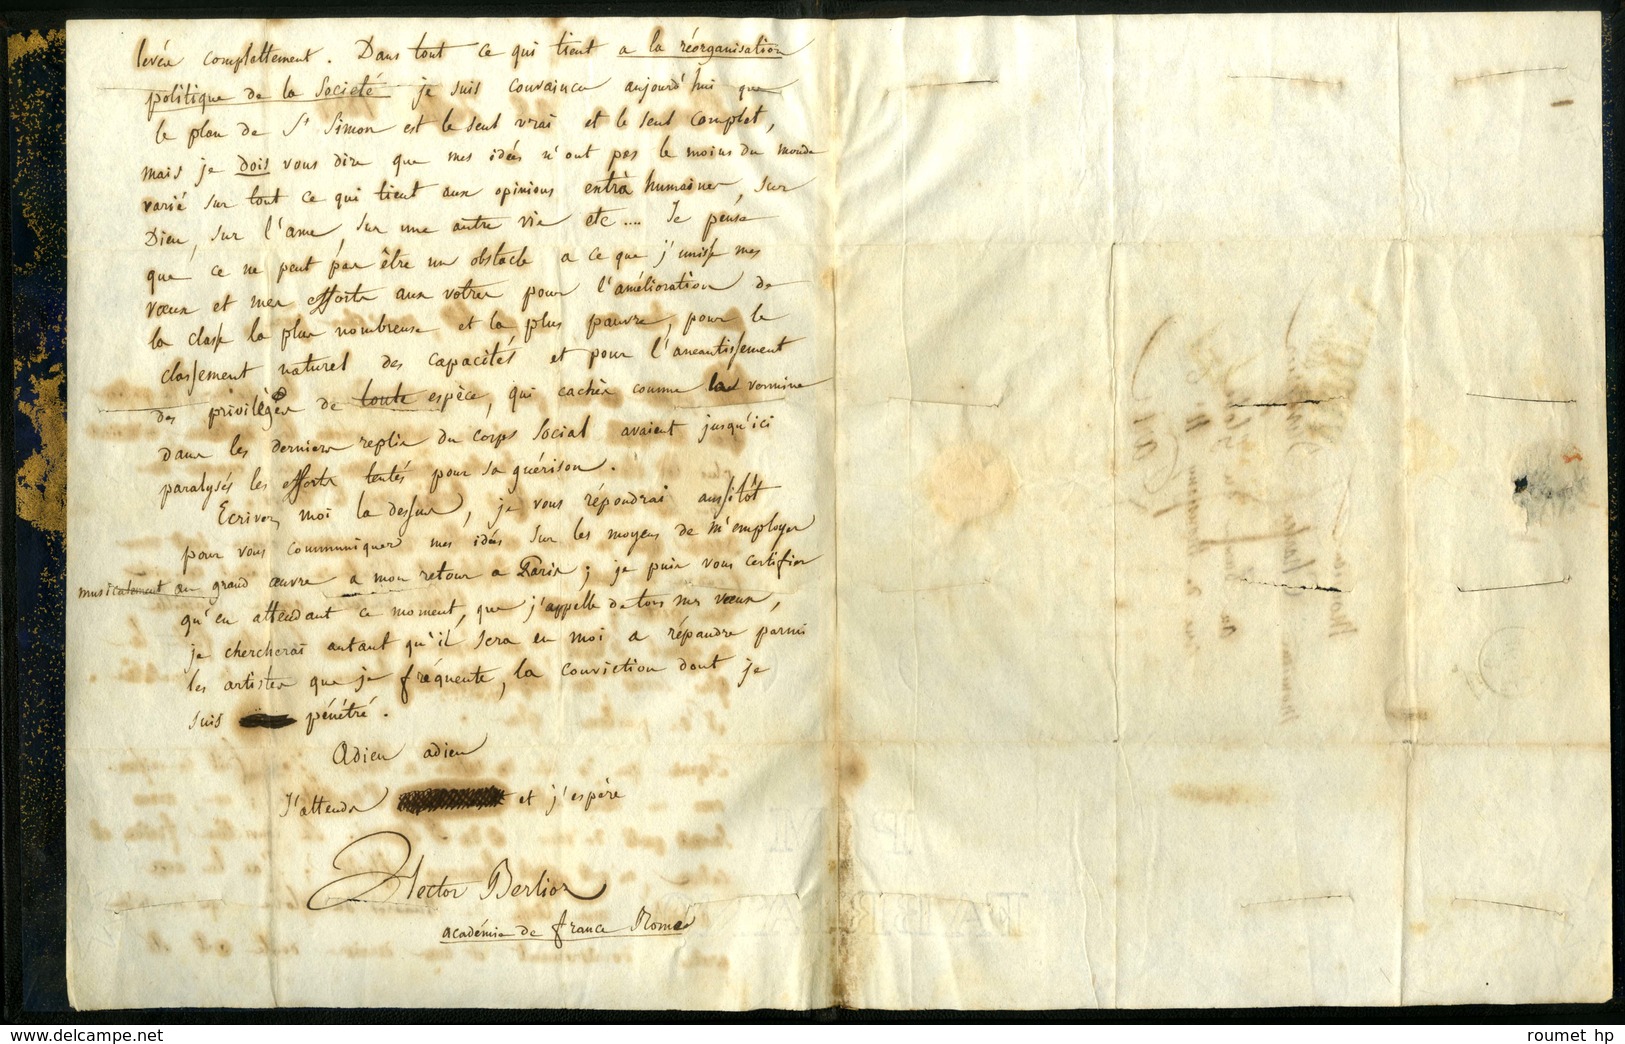 levée complettement. Dans tout ce qui tient a la réorganisation
politique de la Societé je suis convaincu aujourd'hui que
le plan de St Simon est le seul vrai et le seul complet,
mais je dois vous dire que mes idées n'ont pas le moins du monde
varié sur tout ce qui tient aux opinions extrà humaines, sur
Dieu, sur l'ame sur une autre vie etc.... Je pense
que ce ne peut pas être un obstacle a ce que j'unisse mes
vœux et mes efforts aux votres pour l'amélioration de
la classe la plus nombreuse et la plus pauvre, pour le
classement naturel des capacités et pour l'aneantissement
des privilèges de toute espèce, qui cachés comme la vermine
dans les derniers replis du corps Social avaient jusqu'ici
paralysés les efforts tentés pour sa guérison.
Ecrivez moi la dessus, je vous répondrai aussitôt
pour vous communiquer mes idées sur les moyens de m'employer
musicalement au grand œuvre a mon retour a Paris; je puis vous certifier
qu'en attendant ce moment, que j'appelle de tous mes vœux,
je chercherai autant qu'il sera en moi a répandre parmi
les artistes que je fréquente, la conviction dont je
suis pénétré.
Adieu adieu
J'attends et j'espère
Hector Berlioz
académie de france Rome
roumet hp